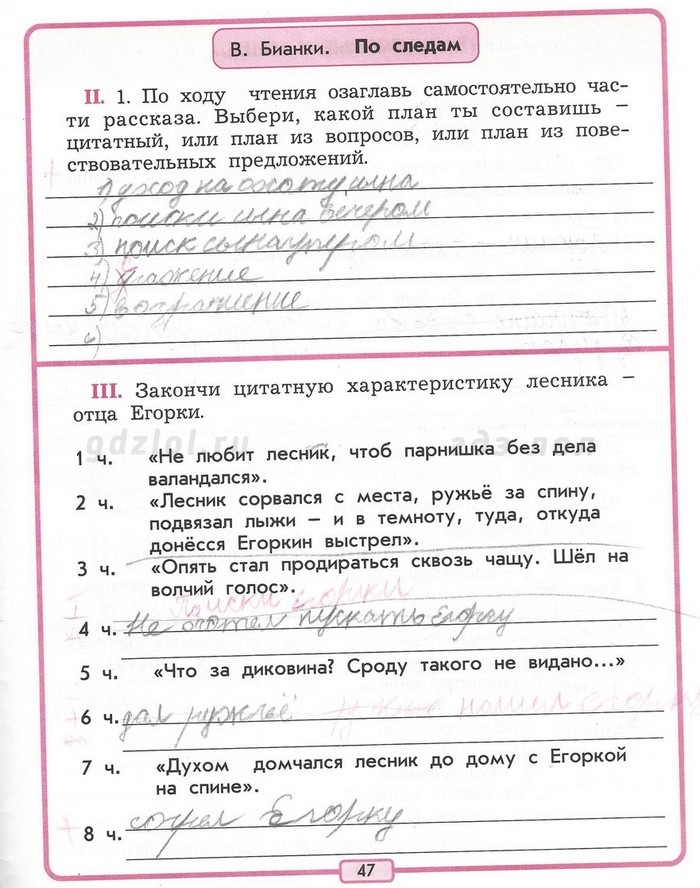 В. Бианки. По следам
II. 1. По ходу чтения озаглавь самостоятельно час-
ти рассказа. Выбери, какой план ты составишь –
цитатный, или план из вопросов, или план из пове-
ствовательных предложений.
1) уход на охоту
2) поиски вечером
3) поиск сына
4)
5)
6)
III. Закончи цитатную характеристику лесника –
отца Егорки.
gdzlol.ru гдз лол
1 ч. «Не любит лесник, чтоб парнишка без дела
валандался».
2 ч. «Лесник сорвался с места, ружьё за спину,
подвязал лыжи – и в темноту, туда, откуда
донёсся Егоркин выстрел».
3 ч. «Опять стал продираться сквозь чащу. Шёл на
волчий голос».
Поиски Егорки
4 ч. Не хотел пускать Егорку
5 ч. «Что за диковина? Сроду такого не видано...»
6 ч. дал ружьё нашел Егорку
7 ч. «Духом домчался лесник до дому с Егоркой
на спине».
8 ч. Егорку
47